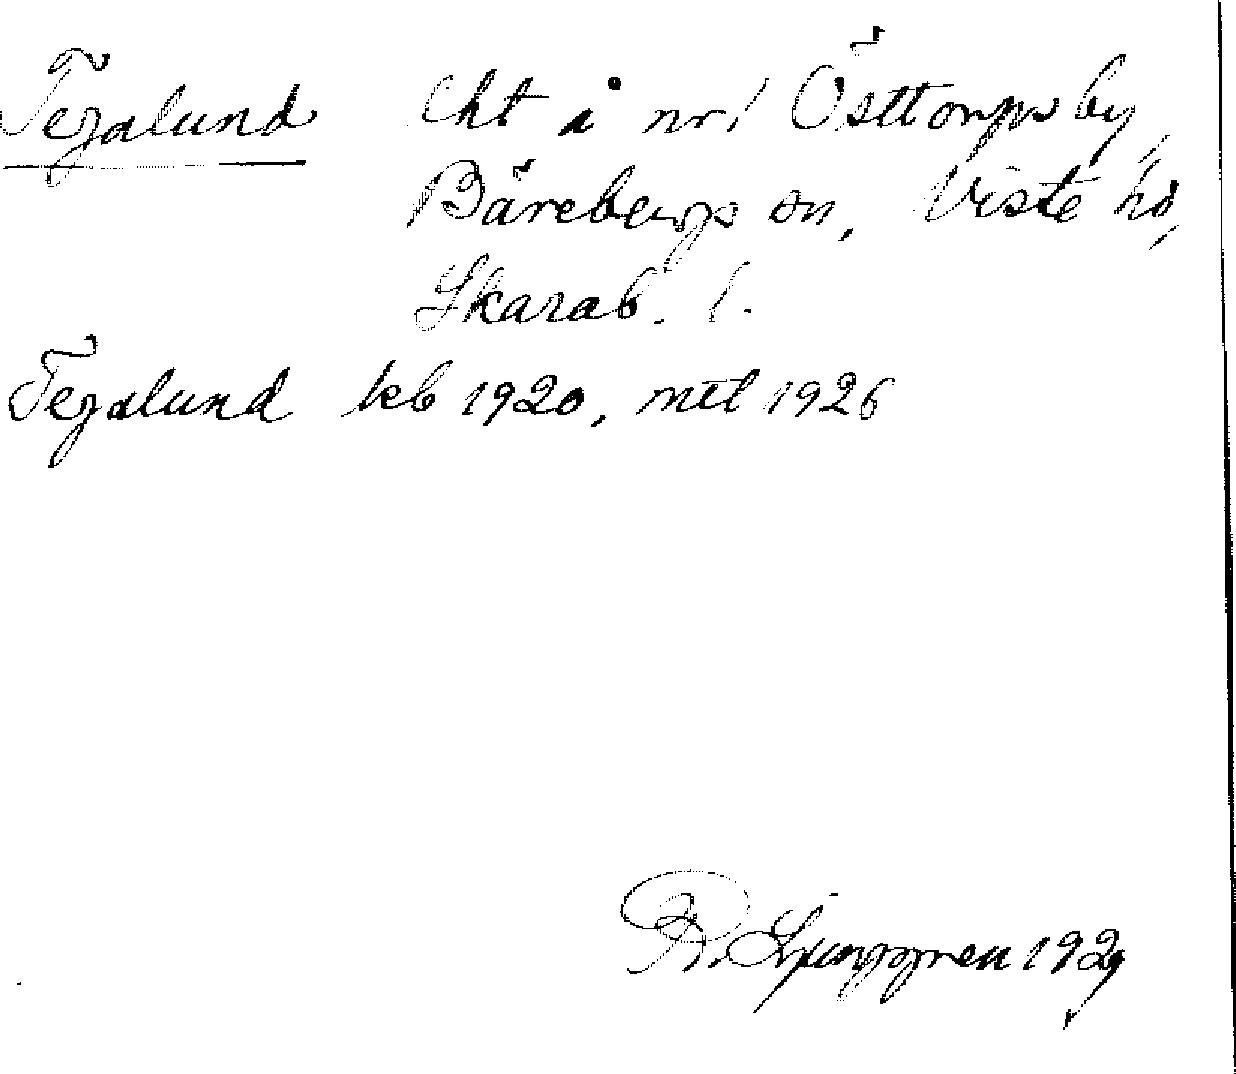 Tegalund lht i nr 1 Östtorps by,
Bärebergs sn, Viste hd,
Skarab. l.
Tegalund kb 1920, mtl 1926
R. Ljunggren 1929